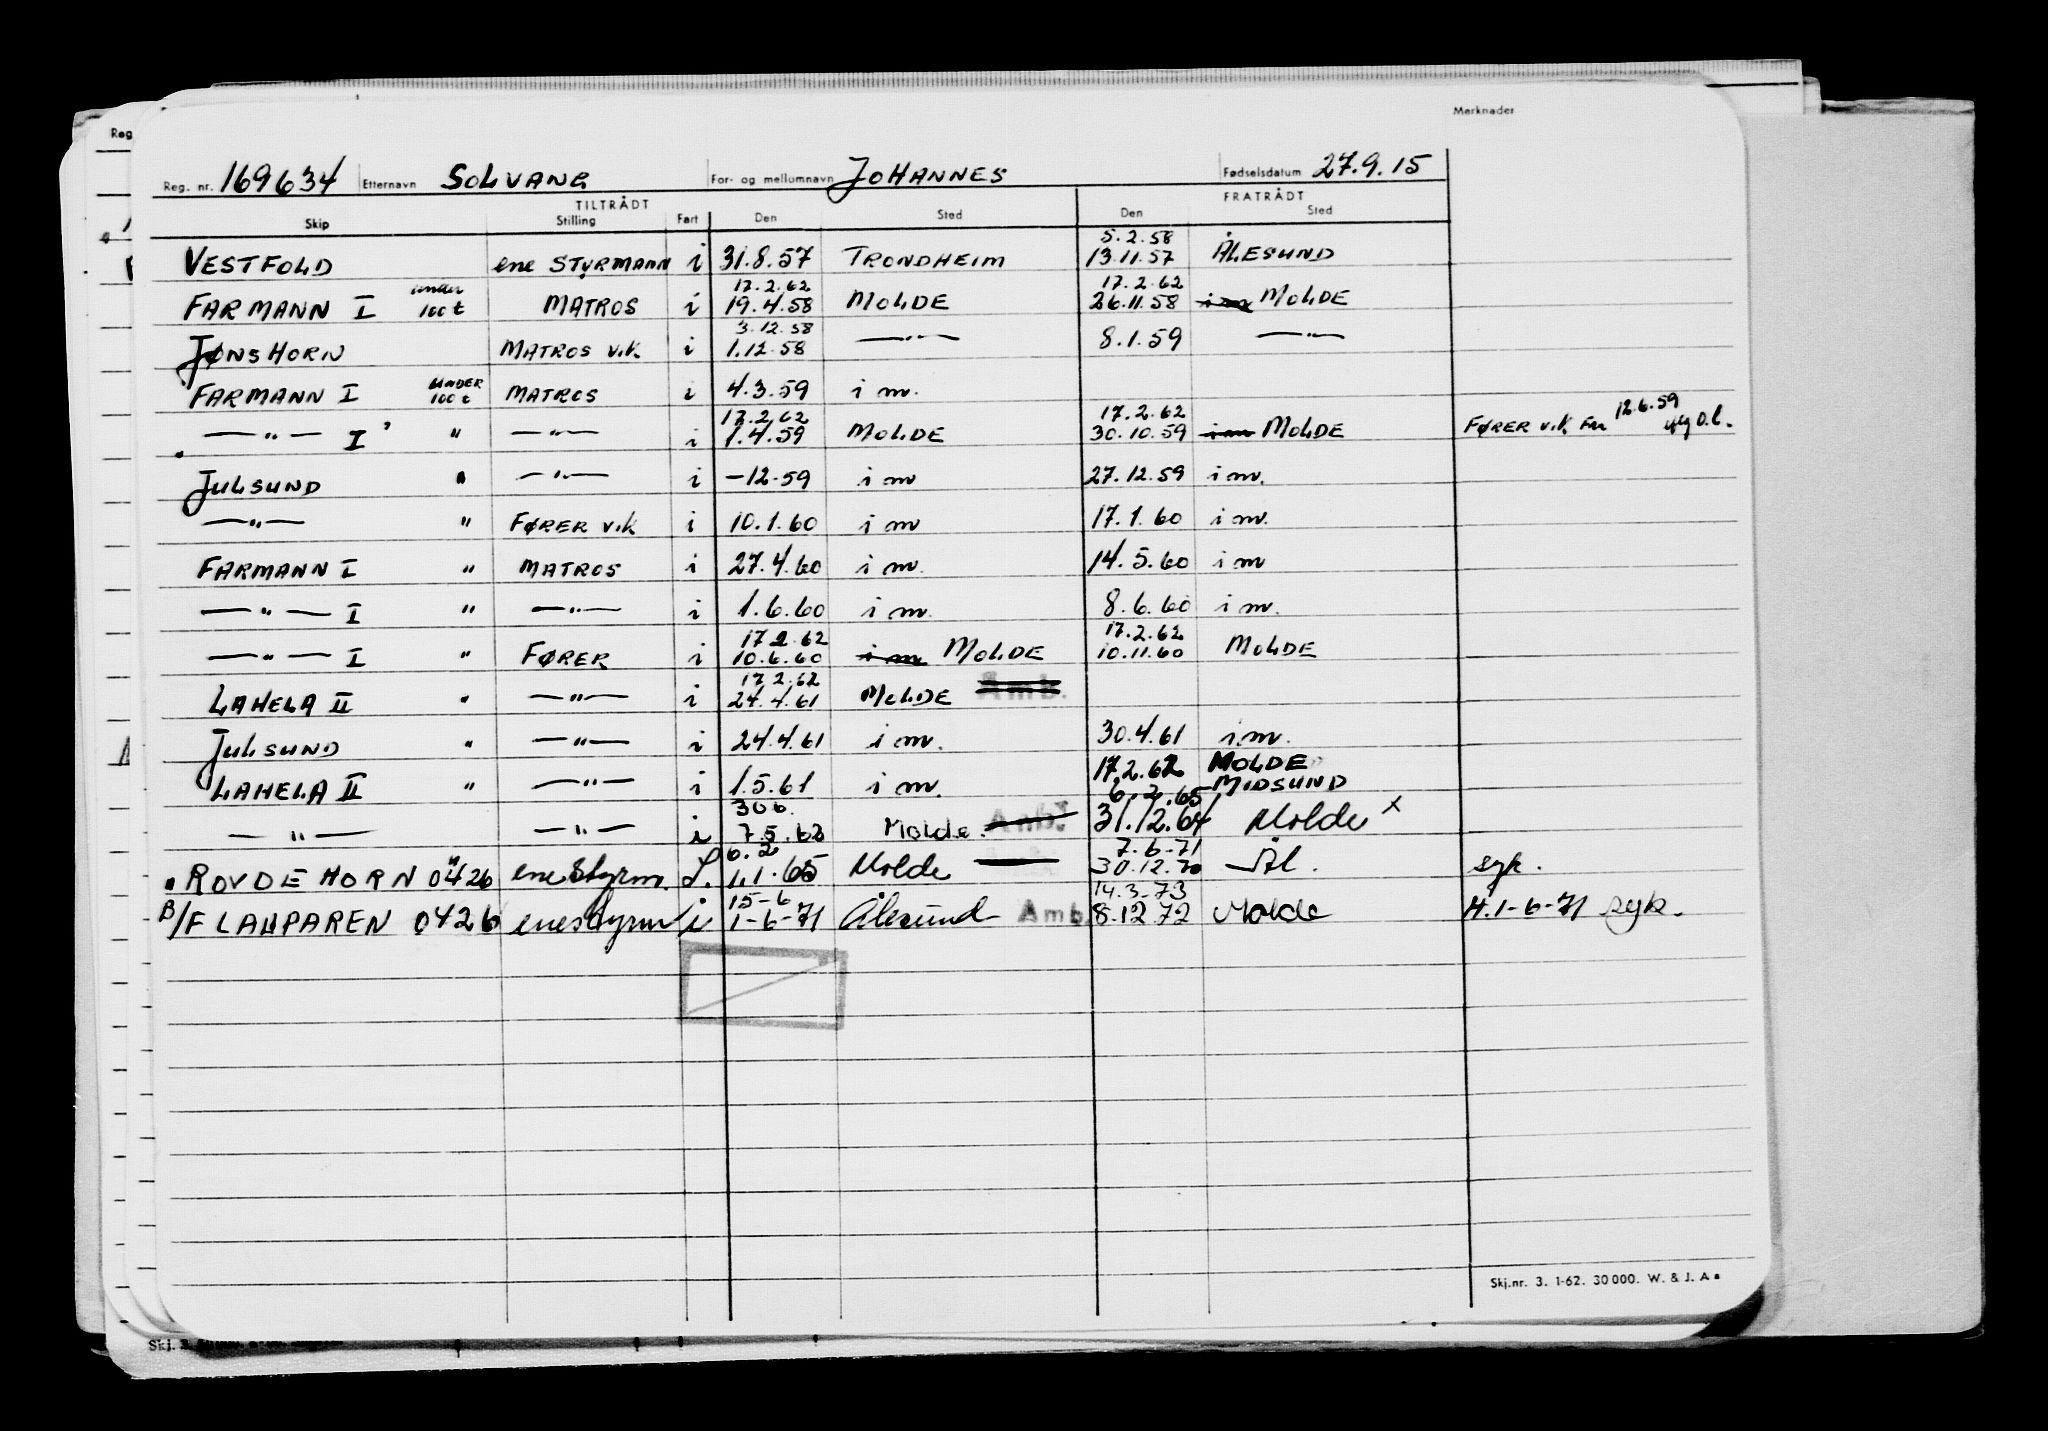 Merknader
Reg
Reg. nr. 169634 Etternavn SOLVANG For- og mellomnavn JOHANNES Fødselsdatum 27.9.15
TILTRÅDT FRATRÅDT
Skip Stilling Fart Den Sted Den Sted
5.2.58
VESTFOLD ene STYRMANN i 31.8.57 TRONDHEIM 13.11.57 ÅLESUND
under 17.2.62 17.2.62
FARMANN I 100 t MATROS i 19.4.58 MOLDE 26.11.58 i m MOLDE
3.12.58
JØNSHORN MATROS v.k. i 1.12.58 —"— 8.1.59 —"—
UNDER
FARMANN I 100 t MATROS i 4.3.59 i m.
17.2.62 17.2.62 12.6.59
—"— I " —"— i 1.4.59 MOLDE 30.10.59 i m MOLDE FØRER v.k. fra iflg D.b.
JULSUND " —"— i -12-59 i m 27.12.59 i m.
—"— " FØRER v.k i 10.1.60 i m 17.1.60 i m.
FARMANN I " MATROS i 27.4.60 i m. 14.5.60 i m
—"— I " —"— i 1.6.60 i m. 8.6.60 i m.
17.2.62 17.2.62
—"— I " FØRER i 10.6.60 i m MOLDE 10.11.60 MOLDE
17.2.62
LAHELA II " —"— i 24.4.61 MOLDE Amb.
JULSUND " —"— i 24.4.61 i m. 30.4.61 i.m.
17.2.62 MOLDE
LAHELA II " —"— i 1.5.61 i m. 6.2.65 MIDSUND
30 6.
—"— —"— i 7.5.62 Molde. Amb. 31.12.64 Molde x
6.2 7.6-71
ROVDEHORN 0426 ene Styrm. L. 1.1.65 Molde 30.12.70 Ål. syk.
15-6 14.3-73
B/F LAUPAREN 0426 enestyrm i 1-6-71 Ålesund Amb. 8.12 72 Molde H.1-6-71 syk.
Skj.nr. 3. 1-62. 30 000. W. & J. A
Skj.